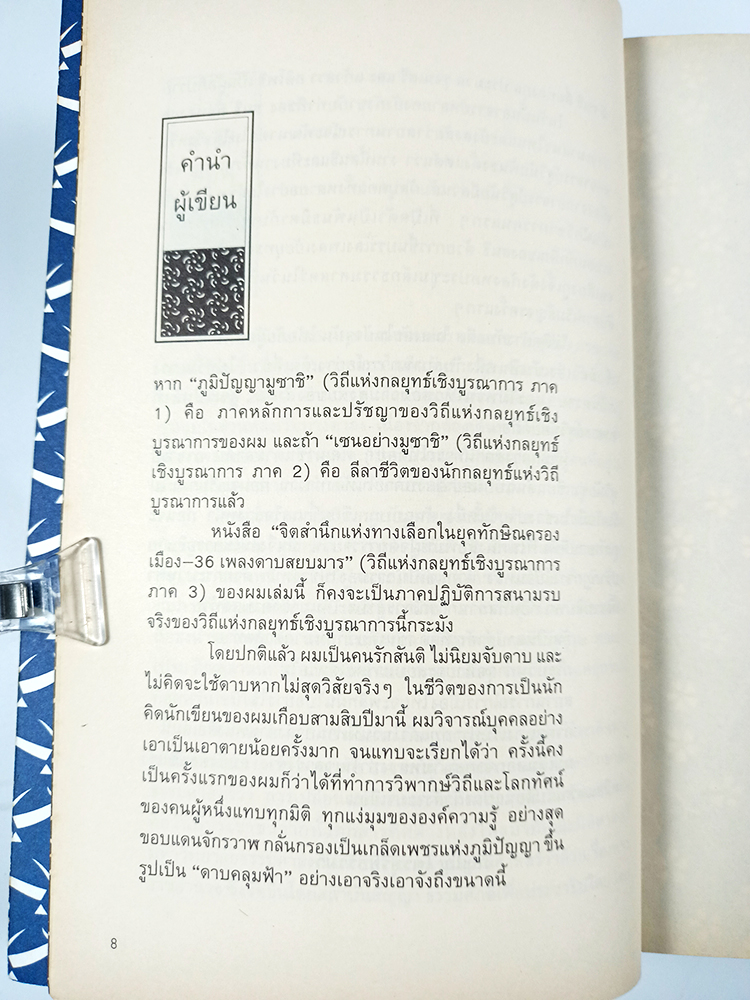 คำนำ
ผู้เขียน
หาก “ภูมิปัญญามูซาชิ” (วิถีแห่งกลยุทธ์เชิงบูรณาการ ภาค
1) คือ ภาคหลักการและปรัชญาของวิถีแห่งกลยุทธ์เชิง
บูรณาการของผม และถ้า “เซนอย่างมูซาชิ” (วิถีแห่งกลยุทธ์
เชิงบูรณาการ ภาค 2) คือ ลีลาชีวิตของนักกลยุทธ์แห่งวิถี
บูรณาการแล้ว
หนังสือ “จิตสำนึกแห่งทางเลือกในยุคทักษิณครอง
เมือง–36 เพลงดาบสยบมาร” (วิถีแห่งกลยุทธ์เชิงบูรณาการ
ภาค 3) ของผมเล่มนี้ ก็คงจะเป็นภาคปฏิบัติการสนามรบ
จริงของวิถีแห่งกลยุทธ์เชิงบูรณาการนี้กระมัง
โดยปกติแล้ว ผมเป็นคนรักสันติ ไม่นิยมจับดาบ และ
ไม่คิดจะใช้ดาบหากไม่สุดวิสัยจริงๆ ในชีวิตของการเป็นนัก
คิดนักเขียนของผมเกือบสามสิบปีมานี้ ผมวิจารณ์บุคคลอย่าง
เอาเป็นเอาตายน้อยครั้งมาก จนแทบจะเรียกได้ว่า ครั้งนี้คง
เป็นครั้งแรกของผมก็ว่าได้ที่ทำการวิพากษ์วิถีและโลกทัศน์
ของคนผู้หนึ่งแทบทุกมิติ ทุกแง่มุมขององค์ความรู้ อย่างสุด
ขอบแดนจักรวาฬ กลั่นกรองเป็นเกล็ดเพชรแห่งภูมิปัญญา ขึ้น
รูปเป็น “ดาบคลุมฟ้า” อย่างเอาจริงเอาจังถึงขนาดนี้
8